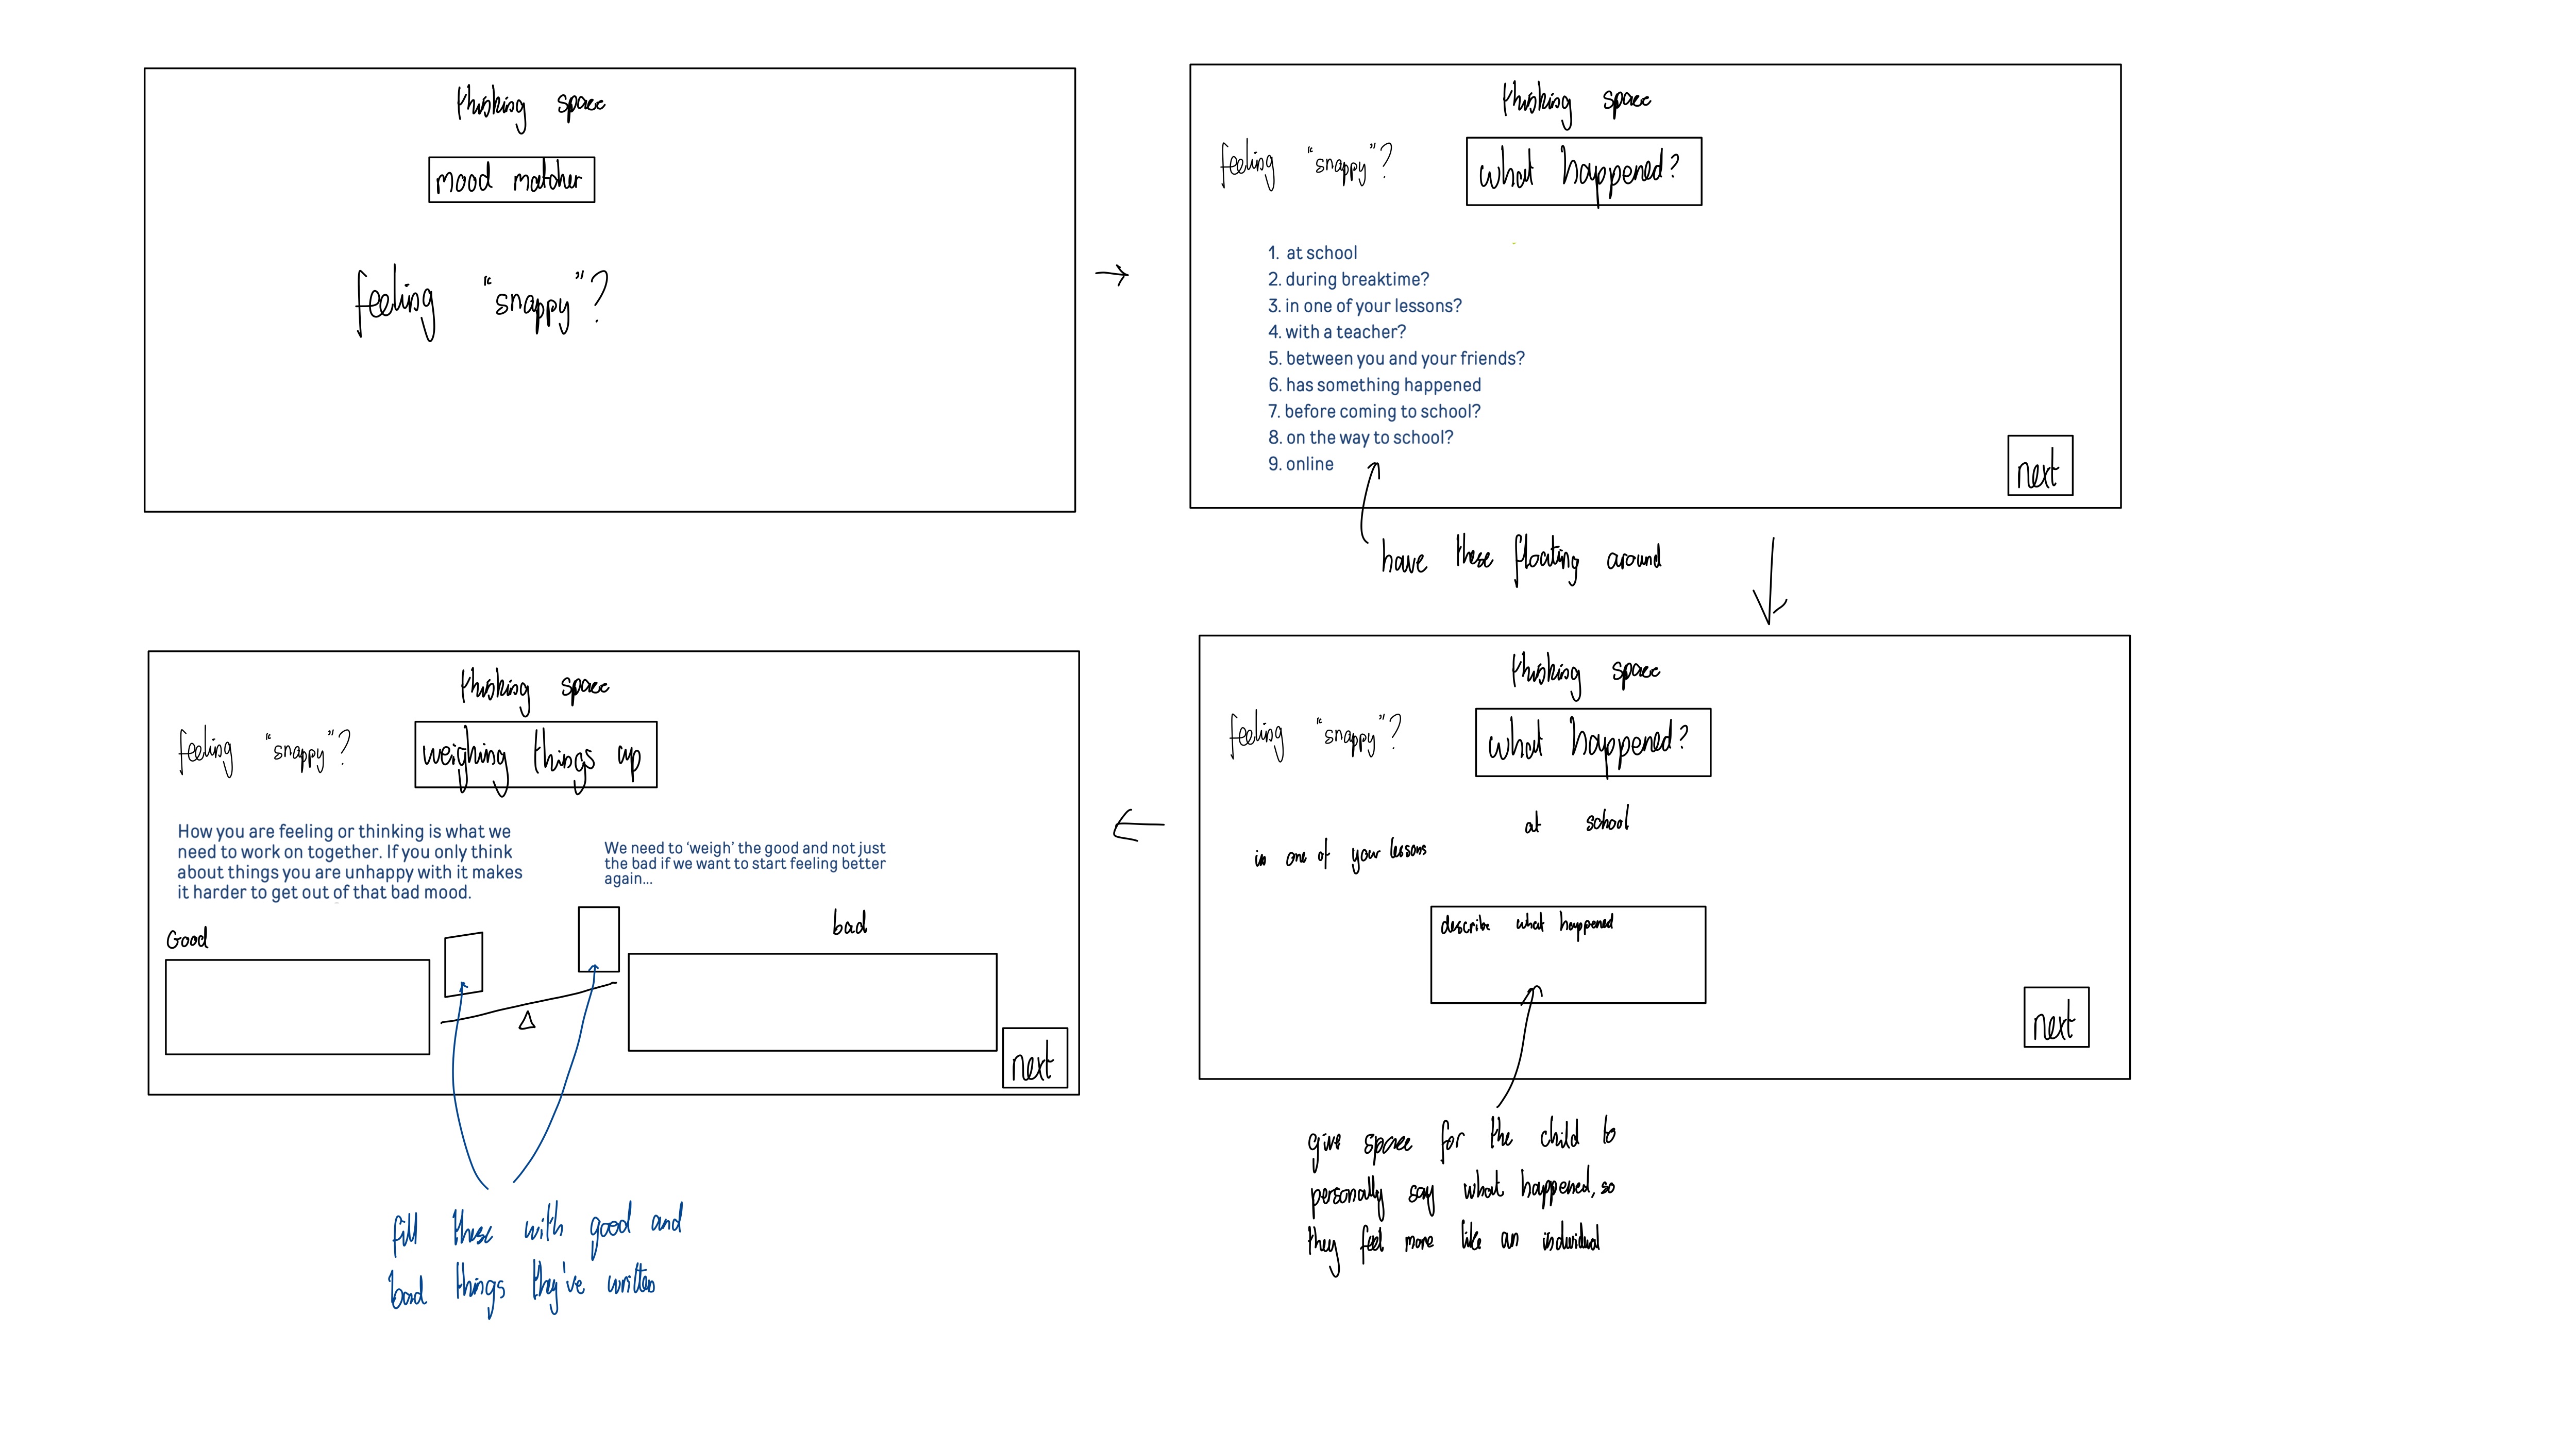 thinking space
mood matcher
feeling "snappy"?
thinking space
feeling "snappy"?
what happened?
1. at school
2. during breaktime?
3. in one of your lessons?
4. with a teacher?
5. between you and your friends?
6. has something happened
7. before coming to school?
8. on the way to school?
9. online
next
have these floating around
thinking space
feeling "snappy"?
what happened?
at school
in one of your lessons
describe what happened
next
give space for the child to
personally say what happened, so
they feel more like an individual
thinking space
feeling "snappy"?
weighing things up
How you are feeling or thinking is what we
need to work on together. If you only think
about things you are unhappy with it makes
it harder to get out of that bad mood.
We need to ‘weigh’ the good and not just
the bad if we want to start feeling better
again...
Good
bad
next
fill these with good and
bad things they've written